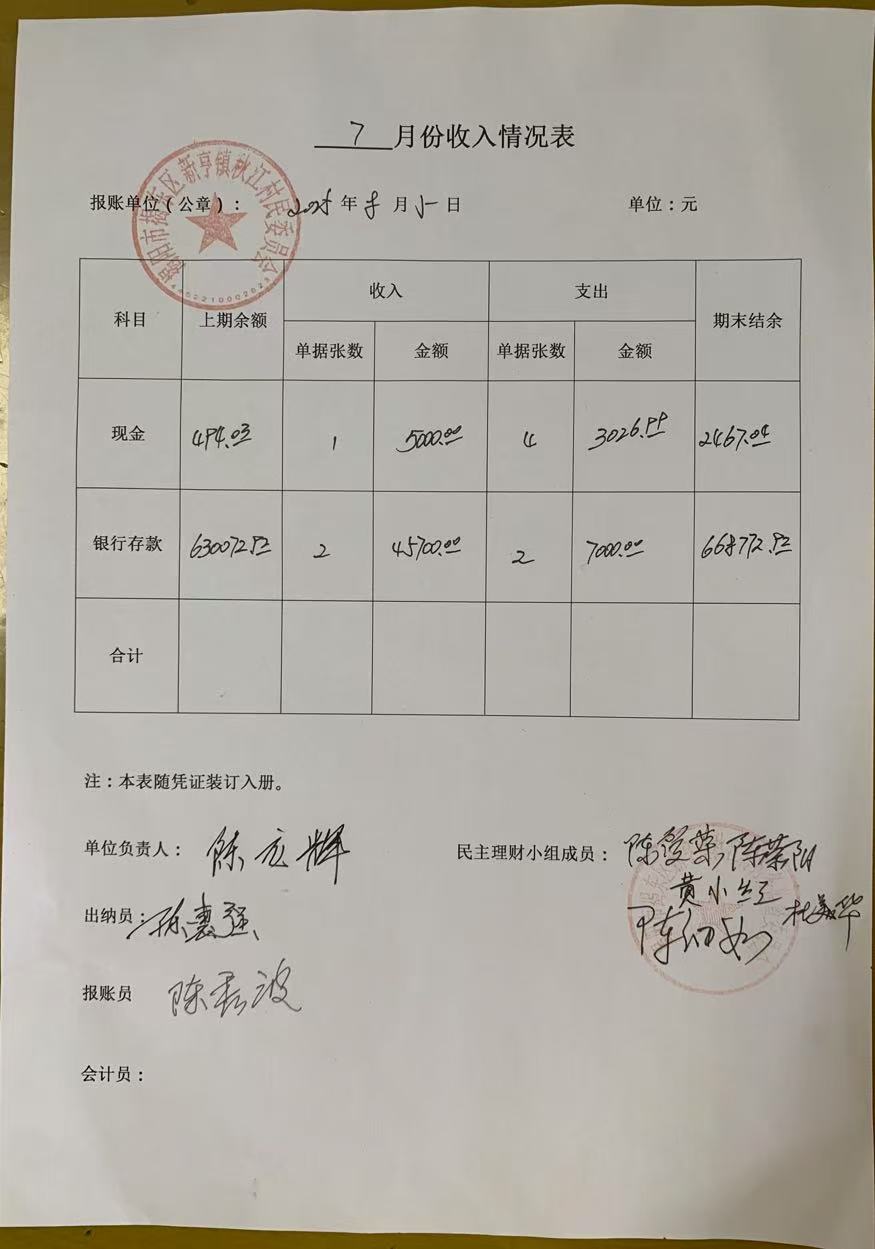 7 月份收入情况表
揭阳市揭东区新亨镇秋江村民委员会
报账单位(公章): 2025 年 8 月 日 单位:元
科目 上期余额 收入 支出 期末结余
单据张数 金额 单据张数 金额
现金 494.03 1 5000.00 4 3026.99 2467.04
银行存款 630072.93 2 45700.00 2 7000.00 668772.93
合计
注:本表随凭证装订入册。
单位负责人: 陈 辉 民主理财小组成员: 陈 荣 陈荣阳
黄小红
出纳员: 陈惠强 杜美华
报账员 陈 波
会计员: